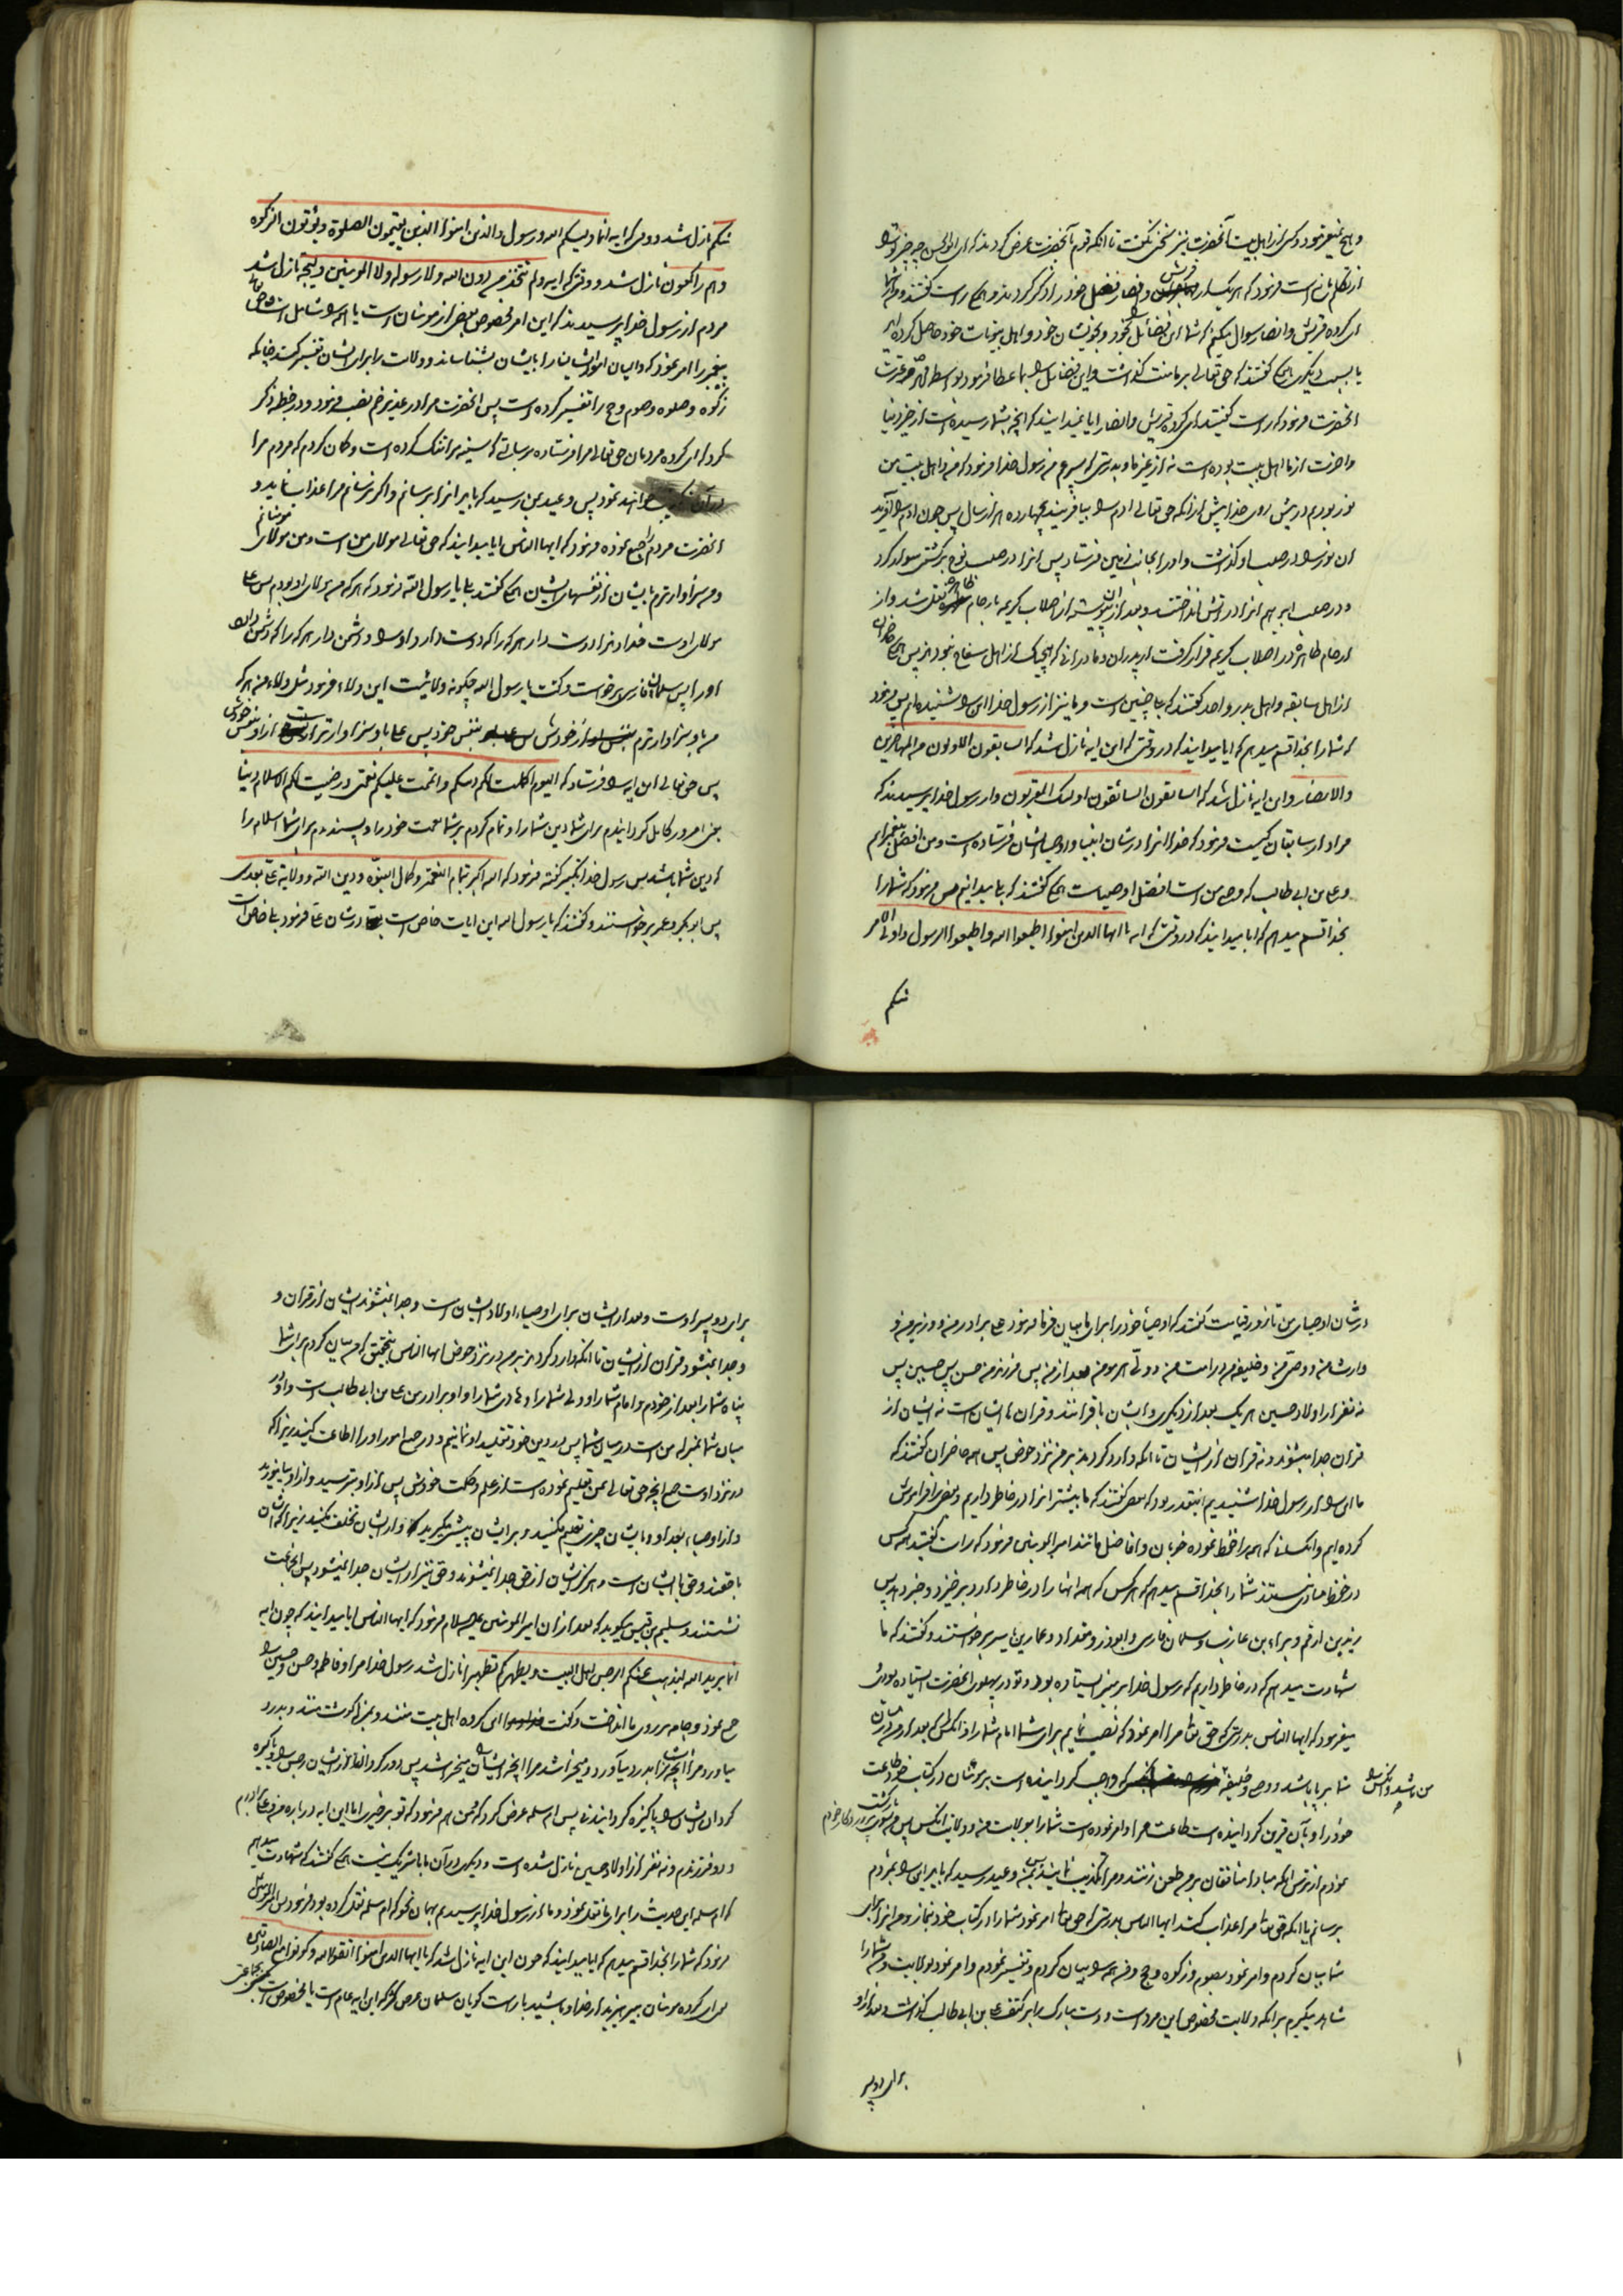 و هیچ تغییر نمود و کسی از اهل بیت آنحضرت نیز سخن نکفت تا آنکه قوم بآنحضرت عرض کردند که ای ابوالحسن چه چیز ترا
از تکلم مانع است فرمود که هر یک از قریش و انصار فضل خود را ذکر کردند و حق راست کفتند و من از شما
ای کروه قریش و انصار سوال میکنم که شما این فضائل بخود و بخویشان خود و اهل بیوتات خود حاصل کرده اید
یا بسبب دیکری ایشان کفتند که حق تعالی بر ما منت کذاشت و این فضائل را بما عطا فرمود بواسطه محمد و عترت
آنحضرت فرمود که راست کفتید ای کروه قریش و انصار ایا نمیدانید که آنچه بشما رسیده است از خیر دنیا
و اخرت از ما اهل بیت بوده است نه از غیر ما و بدرستی که پسر عم من رسول خدا فرمود که من و اهل بیت من
نور بودیم در پیش روی خدا پیش از آنکه حق تعالی ادم را بیافریند بچهارده هزار سال پس چون ادم را آفرید
ان نور را در صلب او کذاشت و او را بجانب زمین فرستاد پس انرا در صلب نوح بر کشتی سوار کرد
و در صلب ابرهیم انرا در آتش انداختند و بعد از ان پیوسته از اصلاب کریمه بارحام طاهره نقل شد و از
ارحام طاهره در اصلاب کریمه قرار کرفت از پدران و مادرانی که هیچیک از اهل سفاح نبودند پس
از اهل سابقه و اهل بدر و احد کفتند که بلی چنین است و ما نیز از رسول خدا این را شنیده ایم پس فرمود
که شما را بخدا قسم میدهم که ایا میدانید که در وقتی که این ایه نازل شد که السابقون الاولون من المهاجرین
والانصار و این ایه نازل شد که السابقون السابقون اولئک المقربون و از رسول خدا پرسیدند که
مراد از سابقان کیست فرمود که خدا انرا در شان انبیا و اوصیاء ایشان فرستاده است و من افضل پیغمبرانم
و علی بن ابی طالب که وصی من است افضل اوصیاست کفتند که بلی میدانیم پس فرمود که شما را
بخدا قسم میدهم که ایا میدانید که در وقتی که ایه یا ایها الذین امنوا اطیعوا الله و اطیعوا الرسول و اولی الامر
منکم
منکم نازل شد و وقتی که ایه انما ولیکم الله و رسوله والذین امنوا الذین یقیمون الصلوة ویؤتون الزکوة
وهم راکعون نازل شد و وقتی که ایه ولم یتخذ من دون الله ولا رسوله ولا المومنین ولیجة نازل شد
مردم از رسول خدا پرسیدند که این امر مخصوص بعض از مومنان است یا همه را شامل است حق تعالی
پیغمبر را امر نمود که والیان امر ایشانرا بایشان بشناساند و ولایت را برای ایشان تفسیر کند چنانکه
زکوة و صلوة و صوم و حج را تفسیر کرده است پس آنحضرت مرا در غدیر خم نصب فرمود و در خطبه ذکر
کرد که ای کروه مردمان حق تعالی مرا فرستاده برسالتی که سینه مرا تنک کرده است و کمان کردم که مردم مرا
در آن خواهند نمود پس وعید بمن رسید که باید انرا برسانم و اکر نرسانم مرا عذاب نماید و
آنحضرت مردم را جمع نموده فرمود که ایها الناس ایا میدانید که حق تعالی مولای من است و من مولای مومنانم
و من سزاوارترم بایشان از نفسهای ایشان کفتند بلی یا رسول الله فرمود که هر که من مولای او بودم پس علی
مولای اوست خداوندا دوست دار هر که را که دوست دارد او را و دشمن دار هر که را که دشمن دارد
او را پس سلمان فارسی برخواست و کفت یا رسول الله چکونه ولائیست این ولاء فرمود مثل ولاء من هر که
من باو سزاوارترم از خودش بنفس خود پس علی باو سزاوارتر است از او بنفس خودش
پس حق تعالی این ایه را فرستاد که الیوم اکملت لکم دینکم و اتممت علیکم نعمتی و رضیت لکم الاسلام دینا
یعنی امروز کامل کردانیدم برای شما دین شما را و تمام کردم بر شما نعمت خود را و پسندیدم برای شما اسلام را
که دین شما باشد پس رسول خدا تکبیر کفته فرمود که الله اکبر بتمام النعمة و کمال النبوة و دین الله و ولایة علی بعدی
پس ابو بکر و عمر برخواستند و کفتند که یا رسول الله این ایات خاص است در شان علی فرمود بلی خاص است
در شان اوصیای من تا روز قیامت کفتند که اوصیاء خود را برای ما بیان فرما فرمود علی برادر من و وزیر من و
وارث من و وصی من و خلیفه من در امت من و ولی هر مومن بعد از من پس فرزند من حسن پس حسین پس
نه نفر از اولاد حسین هر یک بعد از دیکری و ایشان با قرانند و قران با ایشان است نه ایشان از
قران جدا میشوند و نه قران از ایشان تا آنکه وارد کردند بر من نزد حوض پس همه حاضران کفتند که
ما این را از رسول خدا شنیدیم اینقدر بود که بعضی کفتند که ما بیشتر انرا در خاطر داریم و بعضی را فراموش
کرده ایم و آنکسانی که همه را حفظ نموده خوبان و افاضل مانند امیر المومنین فرمود که راست کفتید همه کس
در حفظ مساوی نیستند شما را بخدا قسم میدهم که هر کس که همه انها را در خاطر دارد برخیزد و خبر دهد پس
زید بن ارقم و براء بن عازب و سلمان فارسی و ابوذر و مقداد و عمار بن یاسر برخواستند و کفتند که ما
شهادت میدهیم که در خاطر داریم که رسول خدا بر منبر ایستاده بود و تو در پهلوی آنحضرت ایستاده بودی
میفرمود که ایها الناس بدرستی که حق تعالی مرا امر نمود که نصب نمایم برای شما امام شما را و آنکس که بعد از من در میان
شما بر پا باشد و وصی و خلیفه من باشد و آنکس را که واجب کردانیده است بر مومنان در کتاب خود طاعت
خود را و بآن قرین کردانیده است طاعت مرا و امر نموده است شما را بولایت من و ولایت آنکس پس من بسوی پروردکار خود بازکشت
نمودم از ترس آنکه مبادا منافقان بر من طعن زنند و مرا تکذیب نمایند پس بمن وعید رسید که باید این را بمردم
برسانم یا آنکه حق تعالی مرا عذاب کند ایها الناس بدرستی که حق تعالی امر نمود شما را در کتاب خود بنماز و من انرا برای
شما بیان کردم و امر نمود بصوم و زکوة و حج و من همه را بیان کردم و تفسیر نمودم و امر نمود بولایت و من شما را
شاهد میکیرم بر آنکه ولایت مخصوص این مرد است و دست مبارک را بر کتف علی بن ابی طالب کذاشت و بعد از او
برای دو پسر
برای دو پسر اوست و بعد از ایشان برای اوصیاء اولاد ایشان است و جدا نمیشوند ایشان از قران و
و جدا نمیشود قران از ایشان تا آنکه وارد کردند بر من در نزد حوض ایها الناس بتحقیق که من بیان کردم برای شما
پناه شما را بعد از خودم و امام شما را و ولی شما را و هادی شما را و او برادر من علی بن ابی طالب است و او در
میان شما بمنزله من است در میان شما پس در دین خود تقلید او نمائیم و در جمیع امور او را اطاعت کنید زیرا که
در نزد اوست جمیع آنچه حق تعالی بمن تعلیم نموده است از علم و حکمت خودش پس از او بپرسید و از او بیاموزید
و از اوصیاء بعد او و بایشان چیزی تعلیم مکنید و بر ایشان پیشی مکیرید و از ایشان تخلف مکنید زیرا که ایشان
با حقند و حق با ایشان است و هرکز ایشان از حق جدا نمیشوند و حق نیز از ایشان جدا نمیشود پس آنجماعت
نشستند و سلیم بن قیس میکوید که بعد از ان امیر المومنین علیه السلام فرمود که ایها الناس ایا میدانید که چون ایه
انما یرید الله لیذهب عنکم الرجس اهل البیت ویطهرکم تطهیرا نازل شد رسول خدا مرا و فاطمه و حسن و حسین را
جمع نمود و جامه بر روی ما انداخت و کفت خداوندا این کروه اهل بیت منند و بمنزله کوشت منند و بدرد
میآورد مرا آنچه ایشانرا بدرد میآورد و میخراشد مرا آنچه ایشانرا میخراشد پس دور کردان از ایشان رجس را و پاکیزه
کردان ایشانرا پاکیزه کردانیدنی پس ام سلمه عرض کرد که من هم فرمود که تو بر خیری اما این ایه در باره من و علی برادرم
و دو فرزندم و نه نفر از اولاد حسین نازل شده است و دیکری در آن با ما شریک نیست کفتند که شهادت میدهیم
که ام سلمه این حدیث را برای ما نقل نمود و ما از رسول خدا پرسیدیم بهمان نحو که ام سلمه نقل کرده بود فرمود پس امیر المومنین
فرمود که شما را بخدا قسم میدهم که ایا میدانید که چون این ایه نازل شد که یا ایها الذین امنوا اتقوا الله وکونوا مع الصادقین
یعنی ای کروه مومنان بپرهیزید از خدا و باشید با راست کویان سلمان عرض کرد که این ایه عام است یا مخصوص است بجماعتی